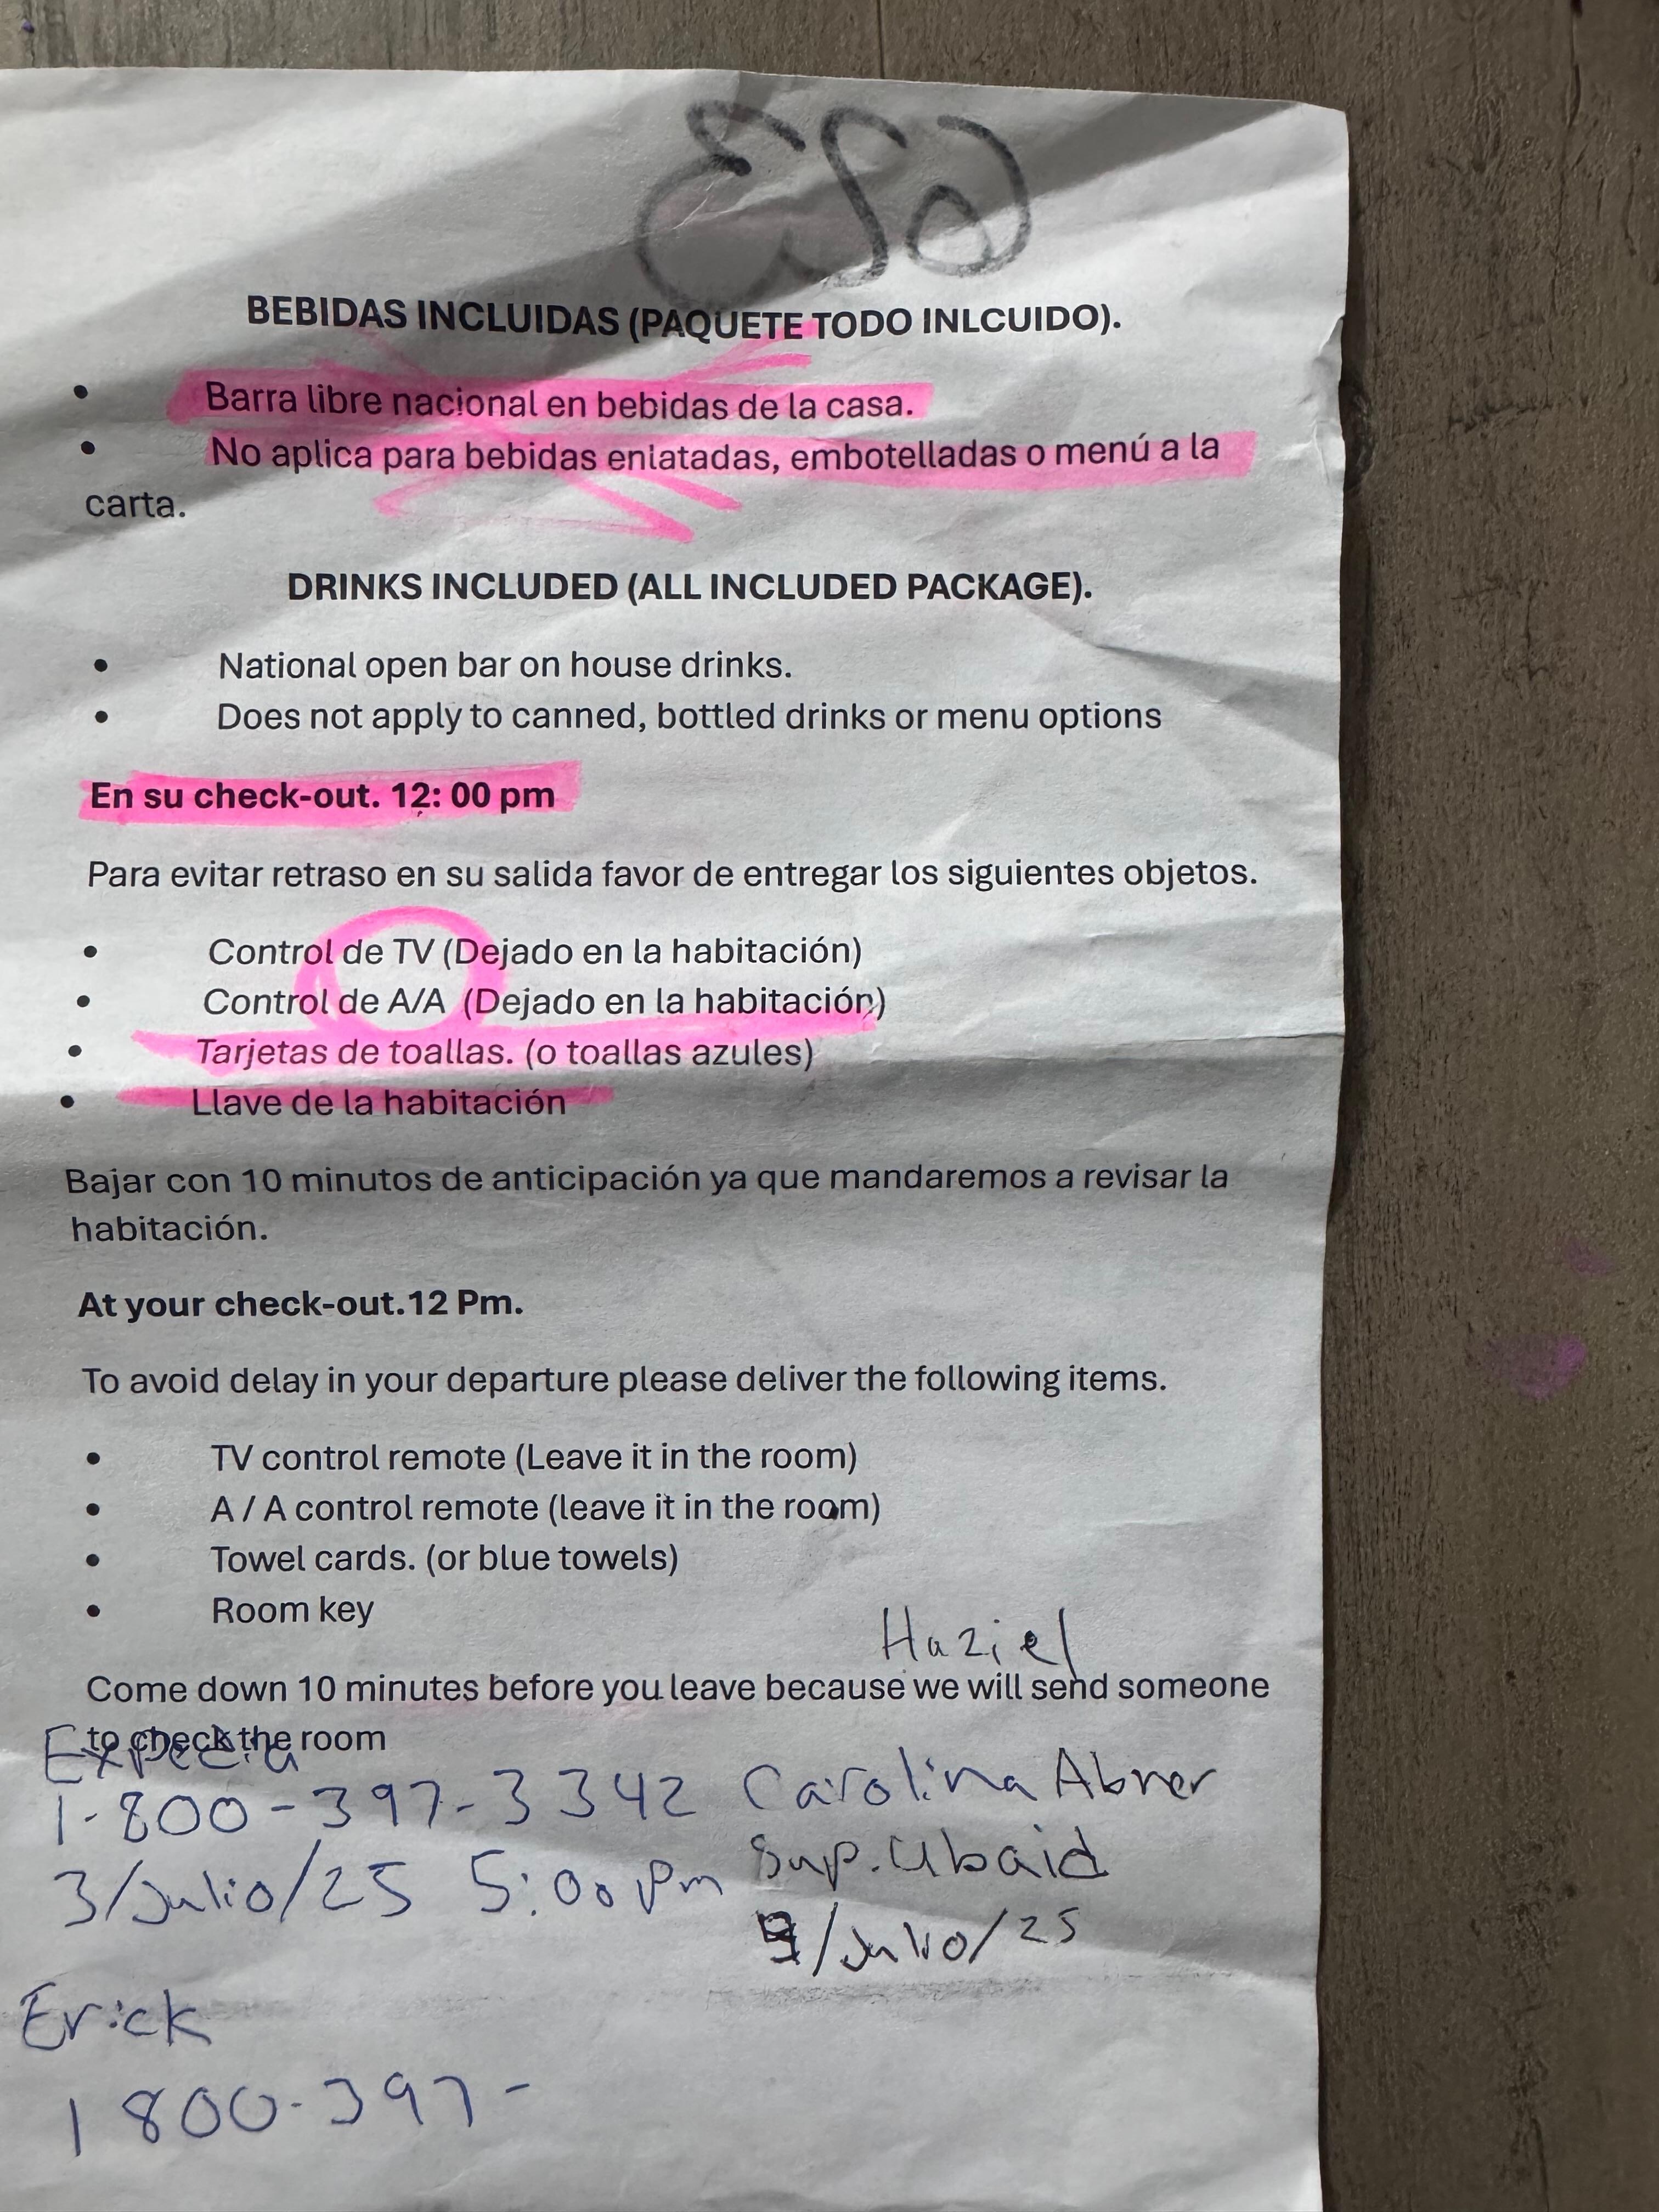 BEBIDAS INCLUIDAS (PAQUETE TODO INLCUIDO).
• Barra libre nacional en bebidas de la casa.
• No aplica para bebidas enlatadas, embotelladas o menú a la
carta.
DRINKS INCLUDED (ALL INCLUDED PACKAGE).
• National open bar on house drinks.
• Does not apply to canned, bottled drinks or menu options
En su check-out. 12: 00 pm
Para evitar retraso en su salida favor de entregar los siguientes objetos.
• Control de TV (Dejado en la habitación)
• Control de A/A (Dejado en la habitación)
• Tarjetas de toallas. (o toallas azules)
• Llave de la habitación
Bajar con 10 minutos de anticipación ya que mandaremos a revisar la
habitación.
At your check-out.12 Pm.
To avoid delay in your departure please deliver the following items.
• TV control remote (Leave it in the room)
• A / A control remote (leave it in the room)
• Towel cards. (or blue towels)
• Room key
Haziel
Come down 10 minutes before you leave because we will send someone
to check the room
Expedia
1-800-397-3342 Carolina Abner
Sup. Ubaid
3/Julio/25 5:00 Pm
/Julio/25
Erick
1800-397-